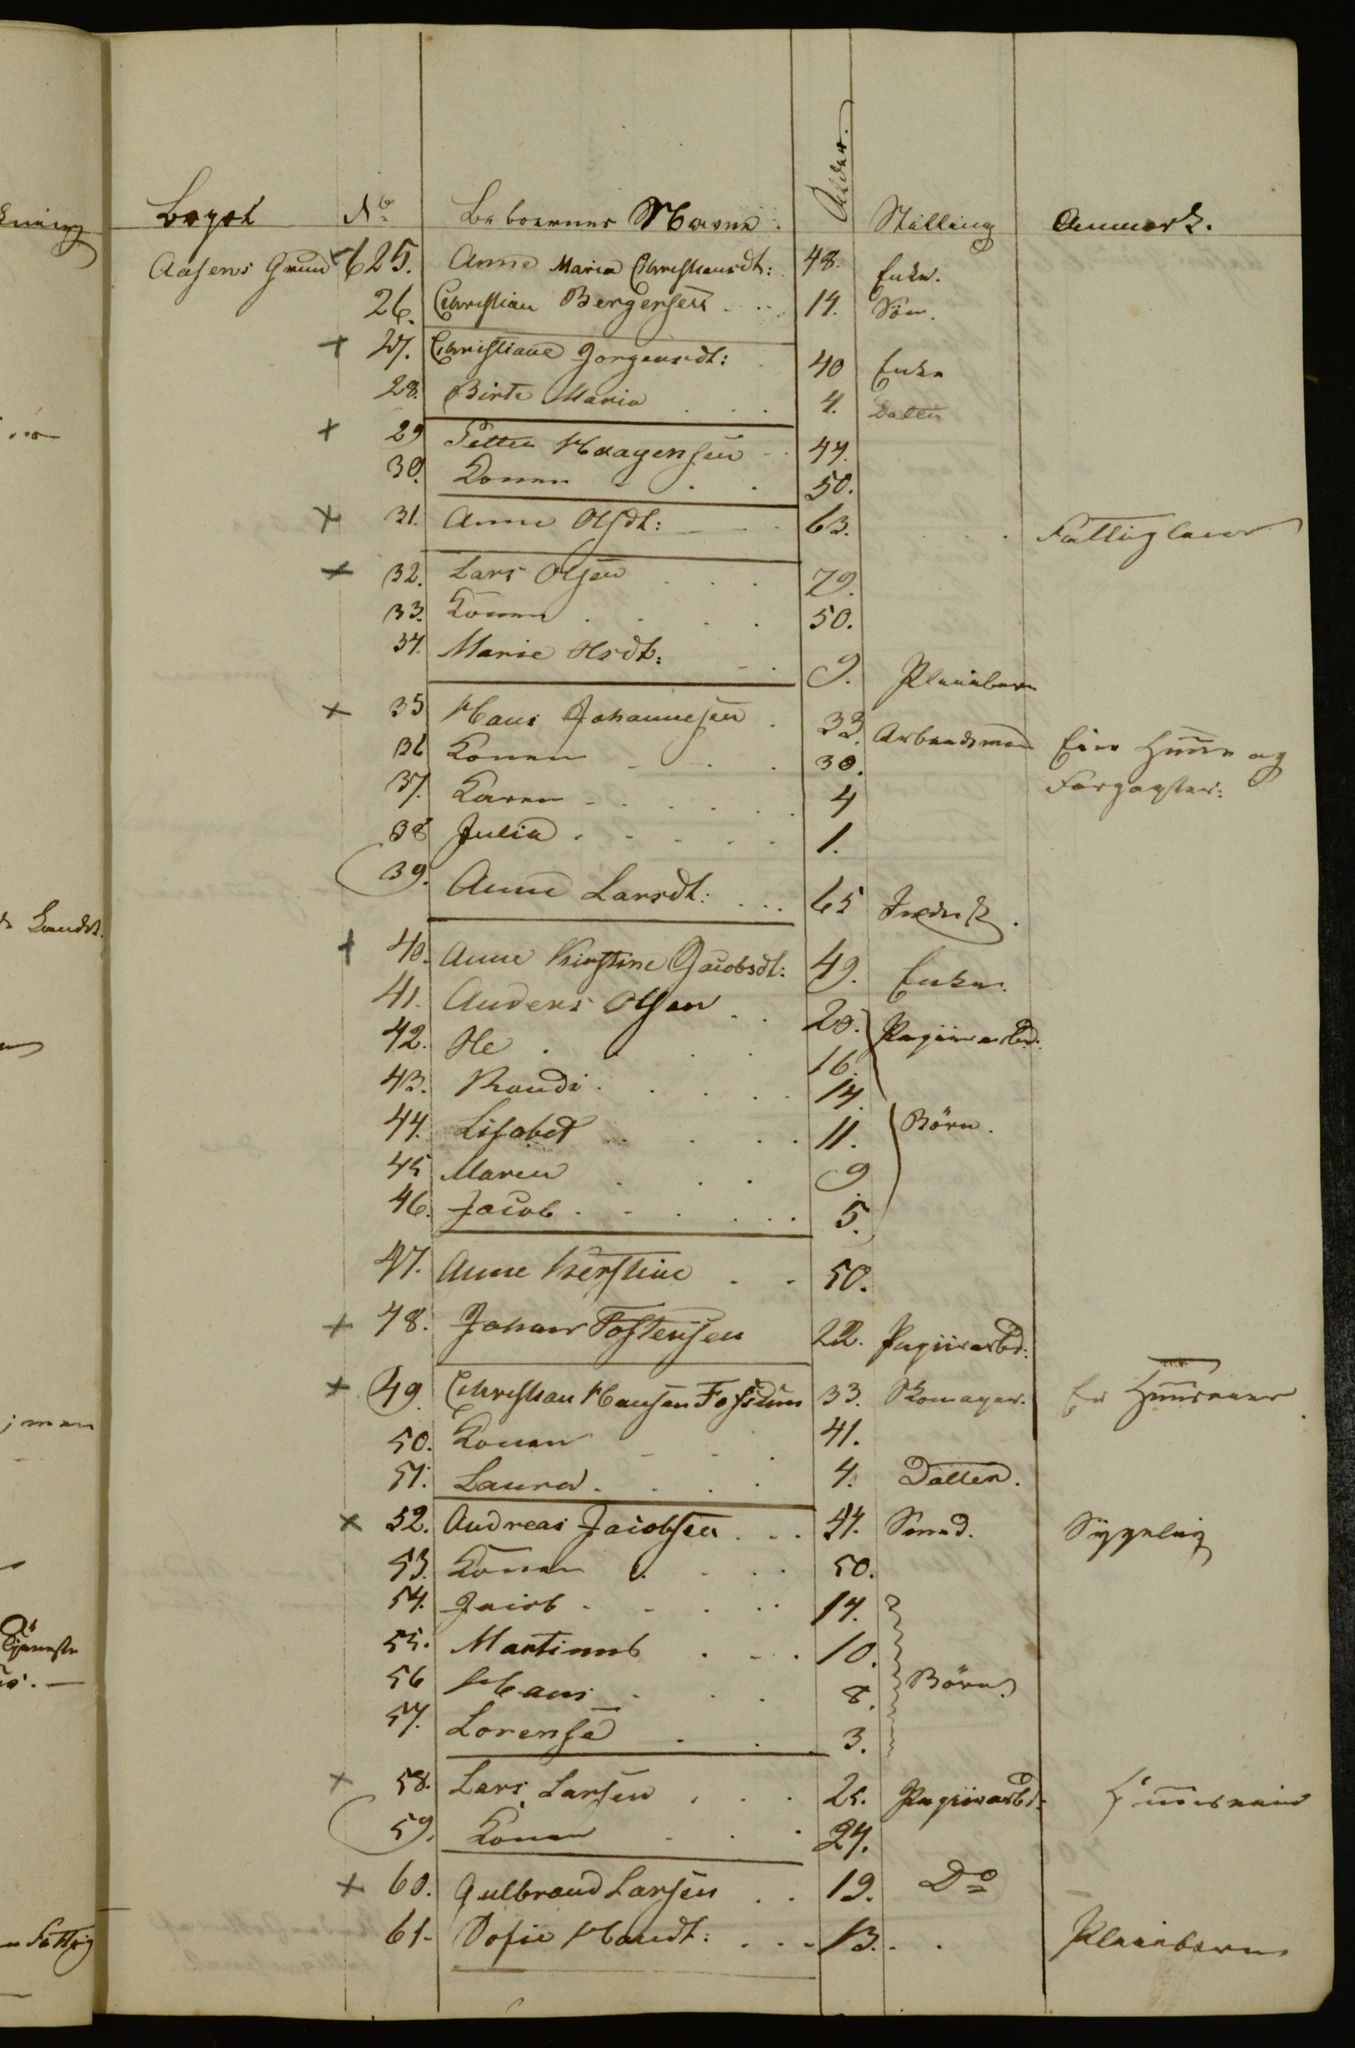 Bopæl No Beboernes Navne Alder. Stilling Anmærk.
Aasens Grund × 625. Anne Maria Christiansdt: 48. Enke.
26. Christian Bergersen 14. Søn.
× 27. Christiane Jorgensdt: 40 Enke
28. Birte Maria 4. Datter
× 29 Petter Haagensen 44.
30. Konen 50.
× 31. Anne Olsdt: 63. Fattiglem
× 32. Lars Olsen 79.
33. Konen 50.
34. Marie Olsdt: 9. Pleiebarn
× 35 Hans Johannesen 33. Arbeidsmand Eier Huus og
36 Konen 30. Forpagter:
37. Karen 4
38 Julia 1.
39. Anne Larsdt: 65 Inderst.
× 40. Anne Kirstine Jacobsdt: 49. Enke.
41. Anders Olsen 20. Papiirarbd:
42. Ole 16.
43. Randi 14.
44. Lisabet 11. Børn.
45 Maren 9
46. Jacob 5.
47. Anne Kerstine 50.
× 48. Johans Tostensen 22. Papiirarbd:
× 49. Christian Hansen Fossum 33. Skomager. Er Huuseier
50. Konen 41.
51. Laura 4. Datter.
× 52. Andreas Jacobsen 44. Smed. Sygelig
53. Konen 50.
54. Jacob 14.
55. Martinus 10.
56 Hans 8. Børn
57. Lorense 3.
× 58. Lars Larsen 25. Papiirarbd: Huuseier
59. Konen 24.
× 60. Gulbrand Larsen 19. Do
61. Sofie Hansdt: 13. Pleiebarn